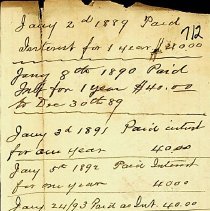 Jany 2d 1889 Paid
712
Interest for 1 year $40.00
Jany 8th 1890 Paid
Int for 1 year $40.00
to Dec 30th 89
Jany 3d 1891 Paid interst
for one year 40.00
Jany 5th 1892 Paid Interest
for one year 4000
Jany 24/93 Paid as Int. 40.00